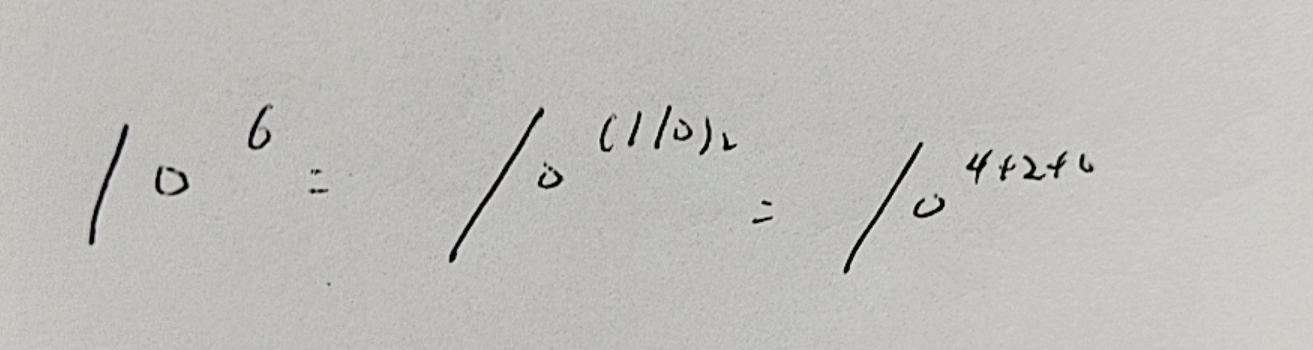 10^6 = 10^(110)₂ = 10^4+2+0